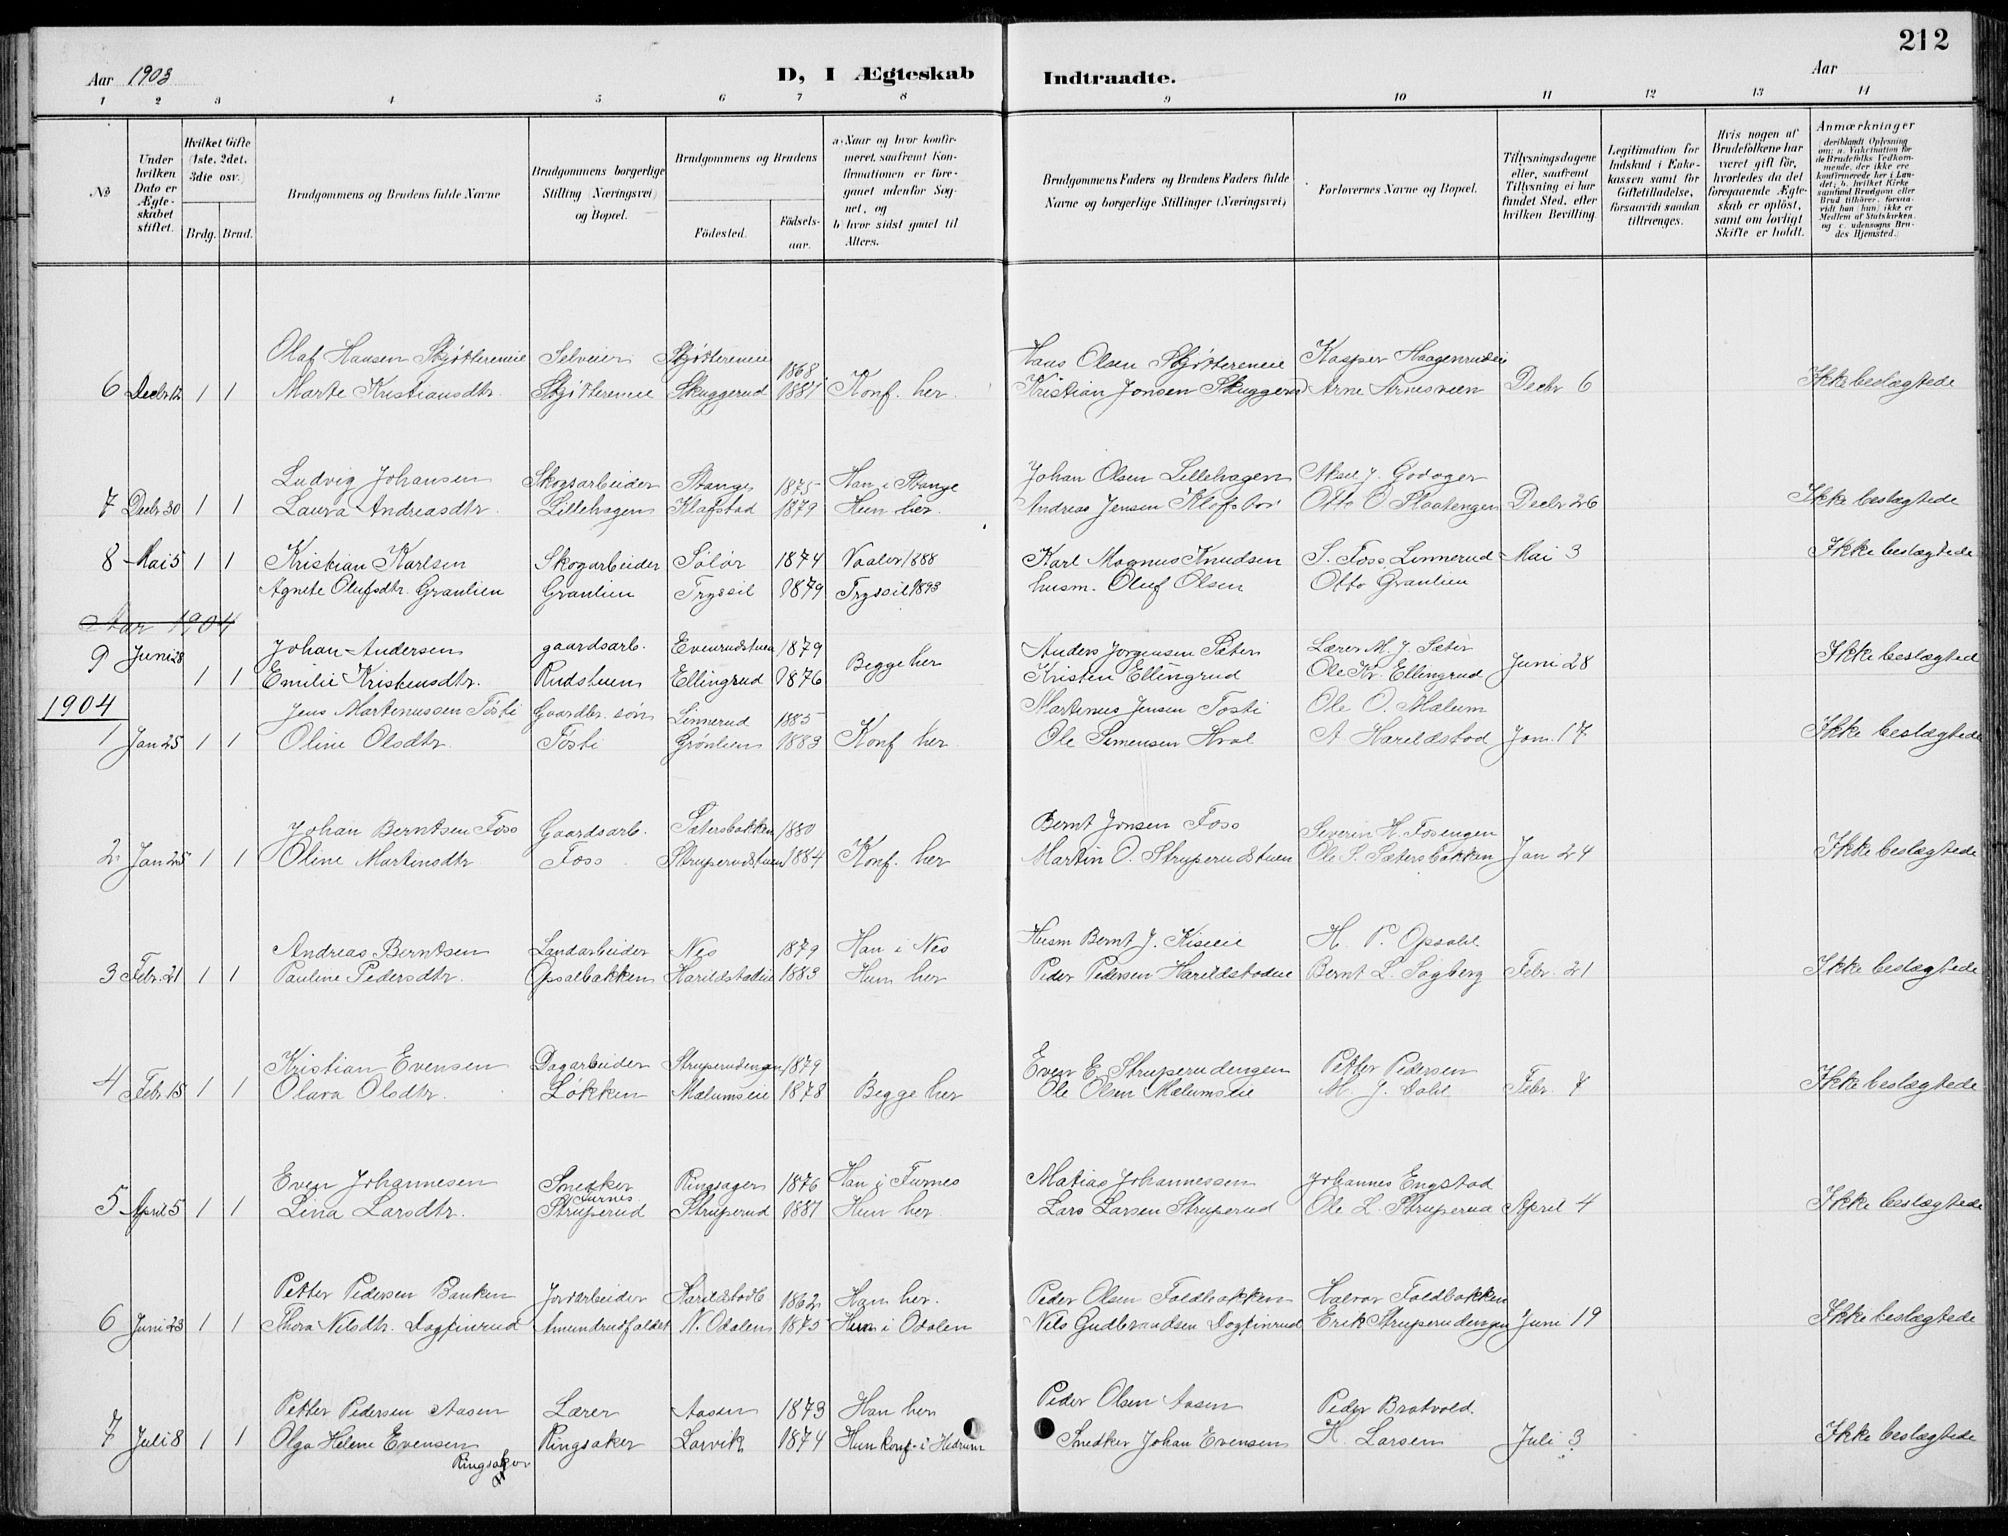 212
Aar 1903
D, I Ægteskab Indtraadte.
Aar
1 2 3 4 5 6 7 8 9 10 11 12 13 14
No
Under hvilken Dato er Ægteskabet stiftet.
Hvilket Gifte (1ste, 2det, 3die osv.)
Brdg. Brud.
Brudgommens og Brudens fulde Navne
Brudgommens borgerlige Stilling (Næringsvei) og Bopæl.
Brudgommens og Brudens
Fødested.
Fødselsaar.
a. Naar og hvor konfirmeret, saafremt Konfirmationen er foregaaet udenfor Sognet, og
b. hvor sidst gaaet til Alters.
Brudgommens Faders og Brudens Faders fulde Navne og borgerlige Stillinger (Næringsvei)
Forlovernes Navne og Bopæl.
Tillysningsdagene eller, saafremt Tillysning ei har fundet Sted, efter hvilken Bevilling.
Legitimation for Indskud i Enkekassen samt for Giftetilladelse, forsaavidt saadan tiltrænges.
Hvis nogen af Brudefolkene har været gift før, hvorledes da det foregaaende Ægteskab er opløst, samt om lovligt Skifte er holdt.
Anmærkninger (deriblandt Oplysning om: a. Vakcination for de Brudefolks Vedkommende, der ikke ere konfirmerede her i Landet; b. hvilket Kirkesamfund Brudgom eller Brud tilhører, forsaavidt han (hun) ikke er Medlem af Statskirken, og c. udensogns Brudes Hjemsted.)
Olaf Hansen Skjøttereneie Selveier Skjøttereneie 1868 Hans Olsen Skjøttereneie Kasper Haagenrudeie
6 Decbr 12 1 1 Marte Kristiansdtr. Skjøttereneie Skuggerud 1881 Konf. her. Kristian Jonsen Skuggerud Arne Arnesveen Decbr 6 Ikke beslægtede
Ludvig Johansen Skogsarbeider Stange 1875 Han i Stange Johan Olsen Lillehagen Aksel J. Godager
7 Decbr 30 1 1 Laura Andreasdtr. Lillehagen Klafstad 1879 Hun her. Andreas Jensen Otto O Plaatengen Decbr 26 Ikke beslægtede
8 Mai 5 1 1 Kristian Karlsen Skogarbeider Solør 1874 Vaaler 1888 Karl Magnus Knudsen S. Foss Linnerud Mai 3 Ikke beslægtede
Agnete Olufsdtr. Granlien Granlien Tryssil 1879 Trysil 1893 husm. Oluf Olsen Otto Granlien
Aar 1904
9 Juni 28 Johan Andersen gaardsarb. Evenrudstuen 1879 Anders Jørgensen Sæter Lærer M. J. Sæter
1 1 Emilie Kristensdtr. Rudstuen Ellingrud 1876 Begge her Kristen Ellingrud Ole Kr. Ellingrud Juni 28 Ikke beslægted
1904
Jens Martenussen Tosti Gaardbr. søn Linnerud 1885 Martenus Jensen Tosti Ole O. Malum
1 Jan 25 1 1 Oline Olsdtr. Tosti Grønlien 1883 Konf her. Ole Simensen Hval A Harildstad Jan. 17 Ikke beslægtede
Johan Berntsen Foss Gaardsarb. Sætersbakken 1880 Bernt Jonsen Foss Severin H. Fosengen
2 Jan 25 1 1 Oline Martinsdtr Foss. Struperudstuen 1884 Konf. her Martin O. Struperudstuen Ole S. Sætersbakken Jan 24 Ikke beslægtede
Andreas Berntsen Landarbeider Nes 1879 Han i Nes Husm Bernt J. Kiseeie H. P. Opsahl
3 Febr. 21 1 1 Pauline Pedersdtr. Opsalbakken Harildstadeie 1883 Hun her Peder Pedersen Harildstadeie Bernt L. Sagberg Febr. 21 Ikke beslægtede
Kristian Evensen Dagarbeider Struperudengen 1879 Even E. Struperudengen Petter Pedersen
4 Febr 15 1 1 Olava Olsdtr. Løkken Malumseie 1878 Begge her Ole Olsen Malumseie M. J. Dahl Febr. 7 Ikke beslægtede
Even Johannesen Snedker Ringsager 1876 Han i Furnes Matias Johannessen Johannes Engstad
Furnes
5 April 5 1 1 Lina Larsdtr. Struperud Struperud 1881 Hun her. Lars Larsen Struperud Ole L. Struperud April 4 Ikke beslægtede
Petter Pedersen Banken Jordarbeider Harildstadb 1862 Han her. Peder Olsen Foldbakken Halvor Foldbakken
6 Juni 23 1 1 Thora Nilsdtr. Dagfinrud Amundrudfaldet N. Odalen 1875 Hun i Odalen Nils Gudbrandsen Dagfinrud Erik Struperudengen Juni 19 Ikke beslægtede
Petter Pedersen Aasen Lærer Aasen 1873 Han her Peder Olsen Aasen Peder Bratvold.
7 Juli 8 1 1 Olga Helene Evensen Ringsaker Larvik 1874 Hun konf. i Hedrum Snedker Johan Evensen H. Larsen Juli 3 Ikke beslægtede
Ringsaker